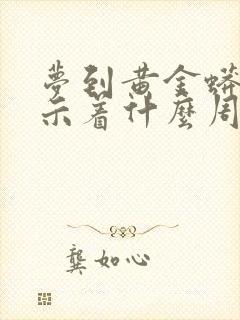 夢到黄金蟒
示着什麼周
龔如心